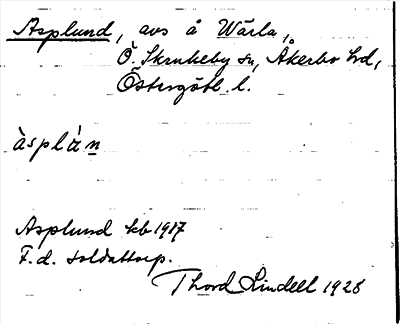 Asplund, avs å Wärla,
Ö. Skrukeby sn, Åkerbo hd,
Östergötl. l.
àsplá̀n
Asplund kb 1917
F.d. soldattorp.
Thord Lindell 1928